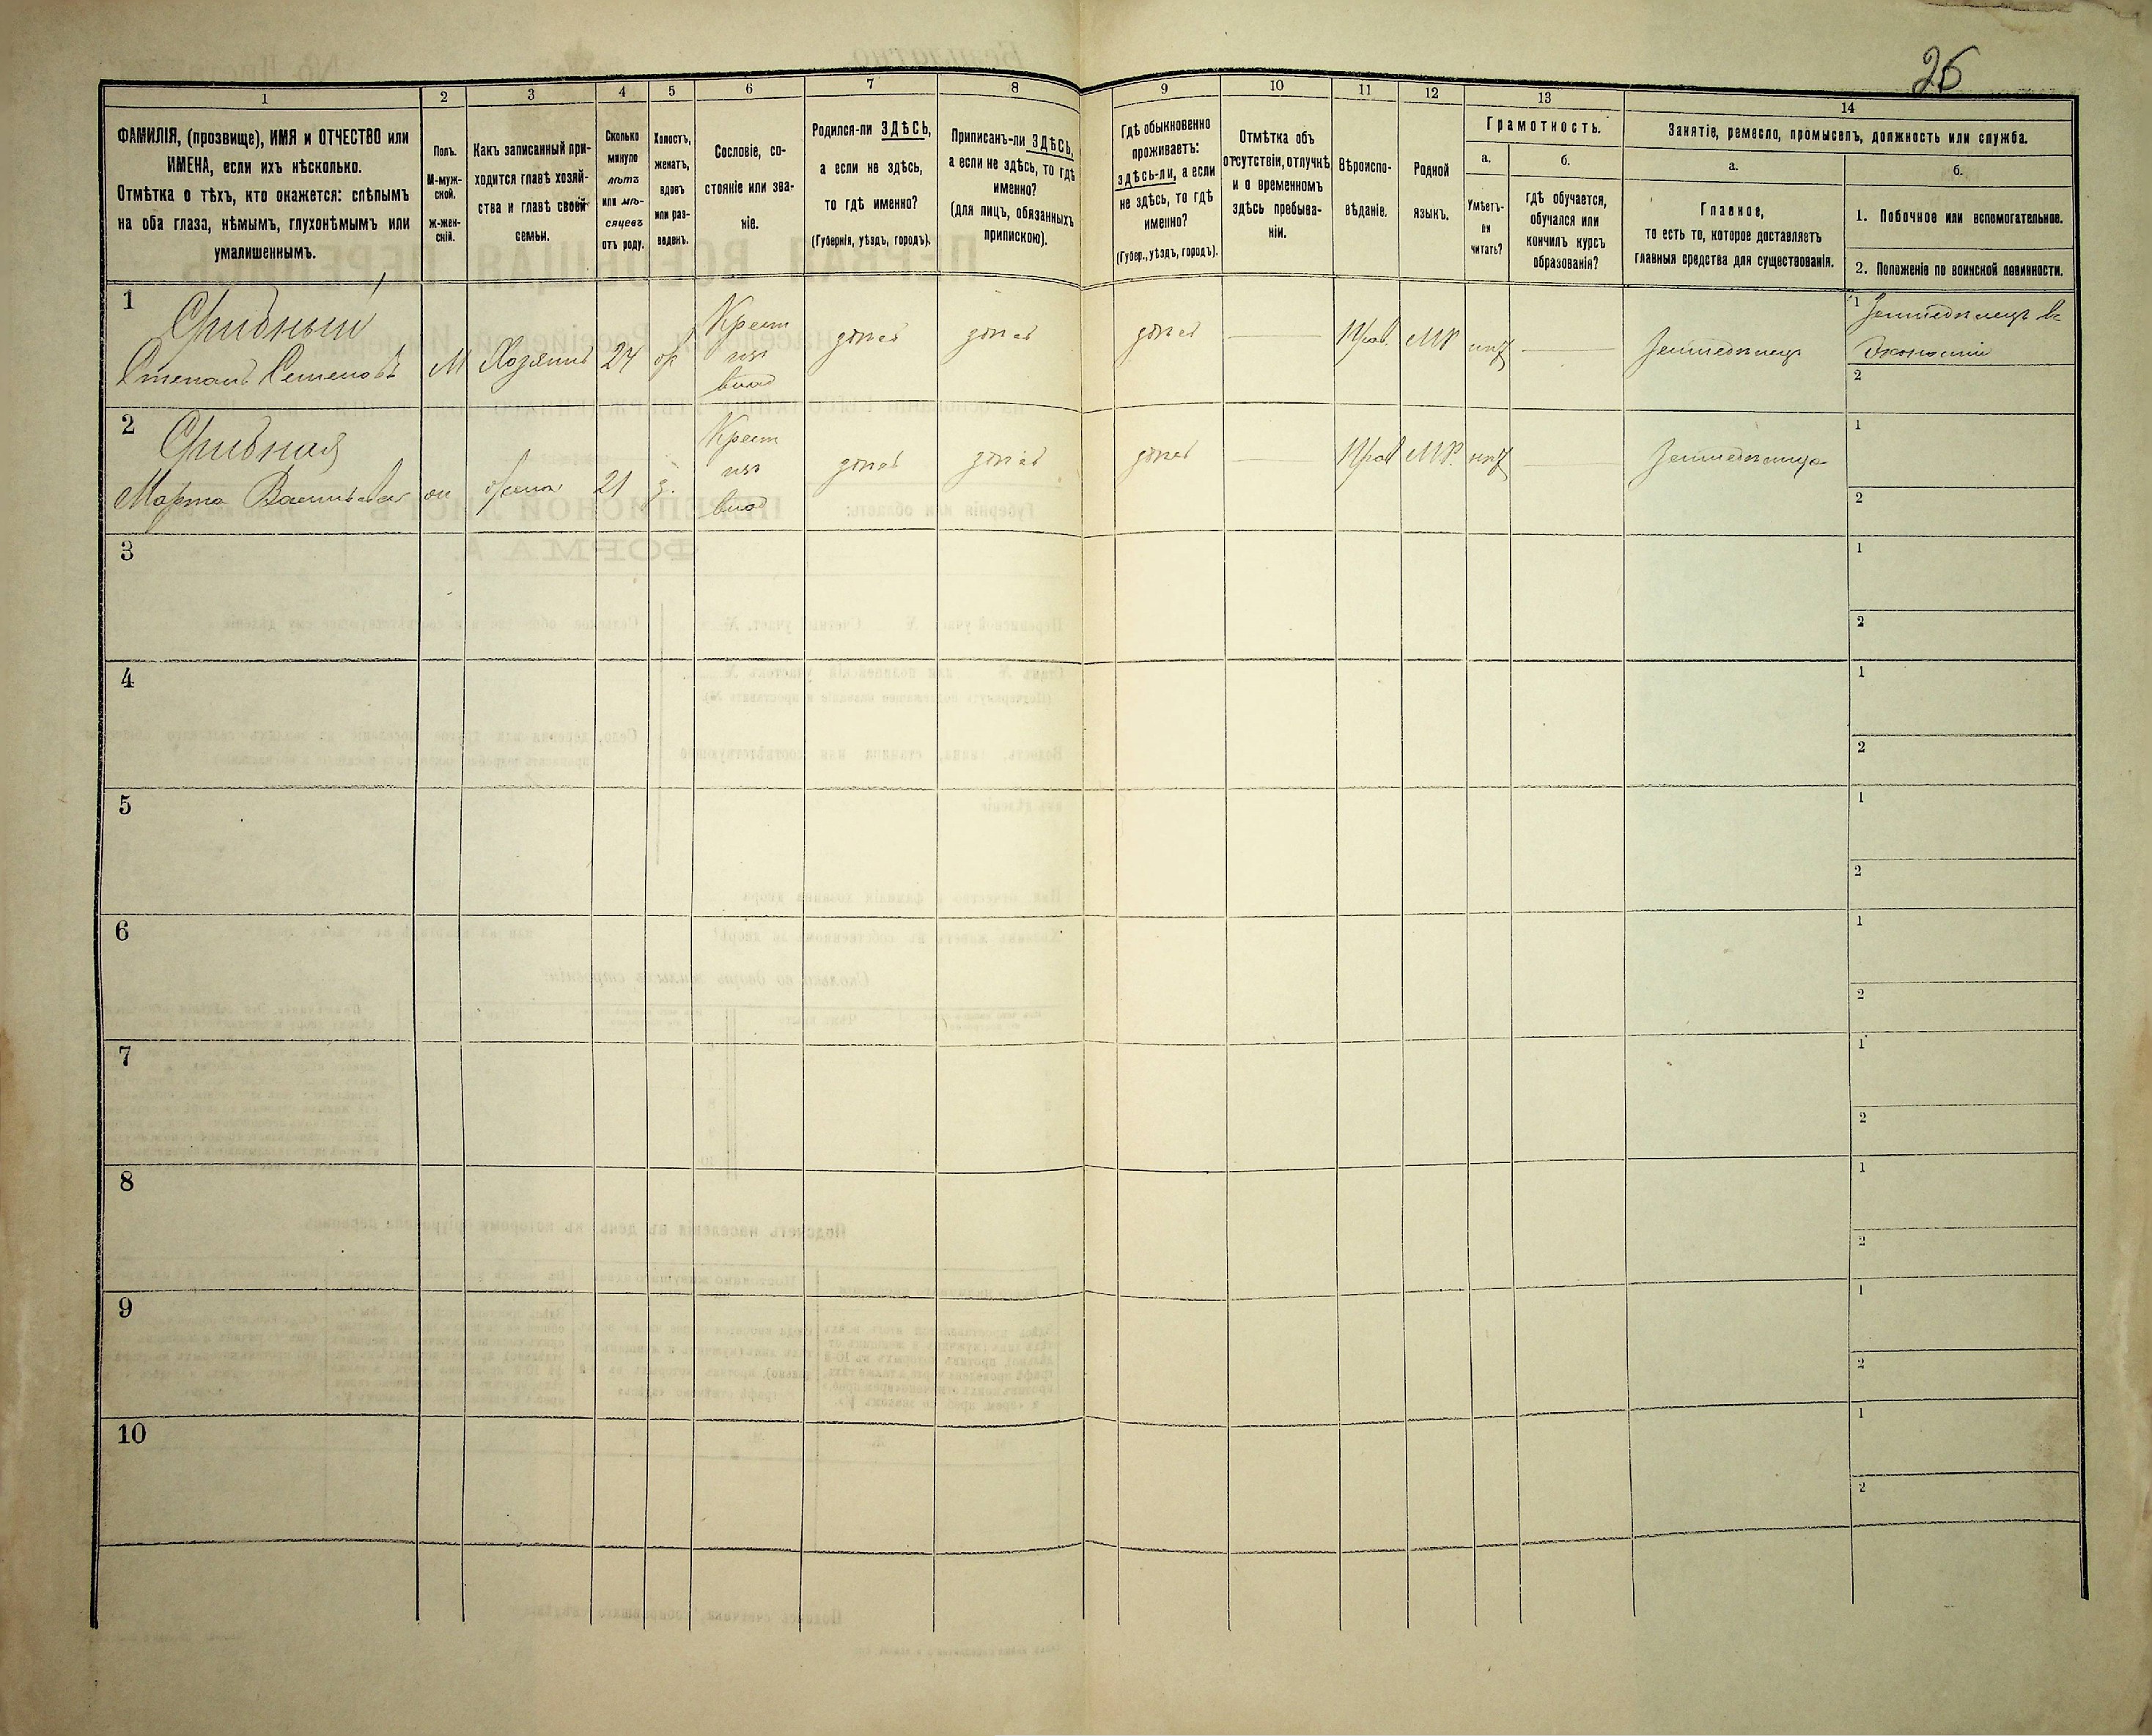 26
1
2
3
4
5
6
7
8
9
10
11
12
13
14
ФАМИЛІЯ, (прозвище), ИМЯ и ОТЧЕСТВО или
ИМЕНА, если ихъ нѣсколько.
Отмѣтка о тѣхъ, кто окажется: слѣпымъ
на оба глаза, нѣмымъ, глухонѣмымъ или
умалишеннымъ.
Полъ.
М-муж-
ской.
Ж-жен-
скій.
Какъ записанный при-
ходится главѣ хозяй-
ства и главѣ своей
семьи.
Сколько
минуло
лѣтъ
или мѣ-
сяцевъ
отъ роду.
Холостъ,
женатъ,
вдовъ
или раз-
веденъ.
Сословіе, со-
стояніе или зва-
ніе.
Родился-ли ЗДѢСЬ,
а если не здѣсь,
то гдѣ именно?
(Губернія, уѣздъ, городъ).
Приписанъ-ли ЗДѢСЬ,
а если не здѣсь, то гдѣ
именно?
(для лицъ, обязанныхъ
припискою).
Гдѣ обыкновенно
проживаетъ:
здѣсь-ли, а если
не здѣсь, то гдѣ
именно?
(Губер., уѣздъ, городъ).
Отмѣтка объ
отсутствіи, отлучкѣ
и о временномъ
здѣсь пребыва-
ніи.
Вѣроиспо-
вѣданіе.
Родной
языкъ.
Грамотность.
а.
Умѣетъ-
ли
читать?
б.
гдѣ обучается,
обучался или
кончилъ курсъ
образованія?
Занятіе, ремесло, промыселъ, должность или служба.
а.
Главное,
то есть то, которое доставляетъ
главныя средства для существованія.
б.
1. Побочное или вспомогательное.
2. Положеніе по воинской повинности.
1
Степанъ Семеновъ
М
Хозяинъ
24
Крест
изъ
влад
здѣсь
здѣсь
здѣсь
Прав.
МР
нѣтъ
Земледѣлецъ
1 Земледѣлецъ въ
Экономіи
2
2
Марта Васильева
жена
21
Крест
изъ
влад
здѣсь
здѣсь
здѣсь
Прав
МР.
нѣтъ
Земледѣлица
1
2
3
1
2
4
1
2
5
1
2
6
1
2
7
1
2
8
1
2
9
1
2
10
1
2